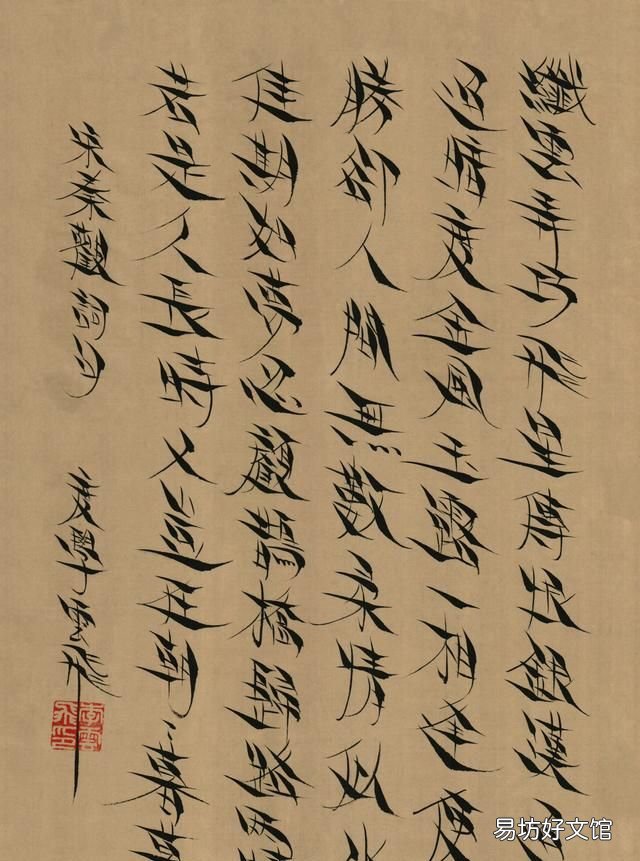 纖雲弄巧飛星傳恨銀漢
迢暗度金風玉露一相逢便
勝卻人間無數柔情似水
佳期如夢忍顧鵲橋歸路兩
若是久長時又豈在朝〻暮
宋秦觀詞句
雲飛
李雲飛印
易坊好文馆